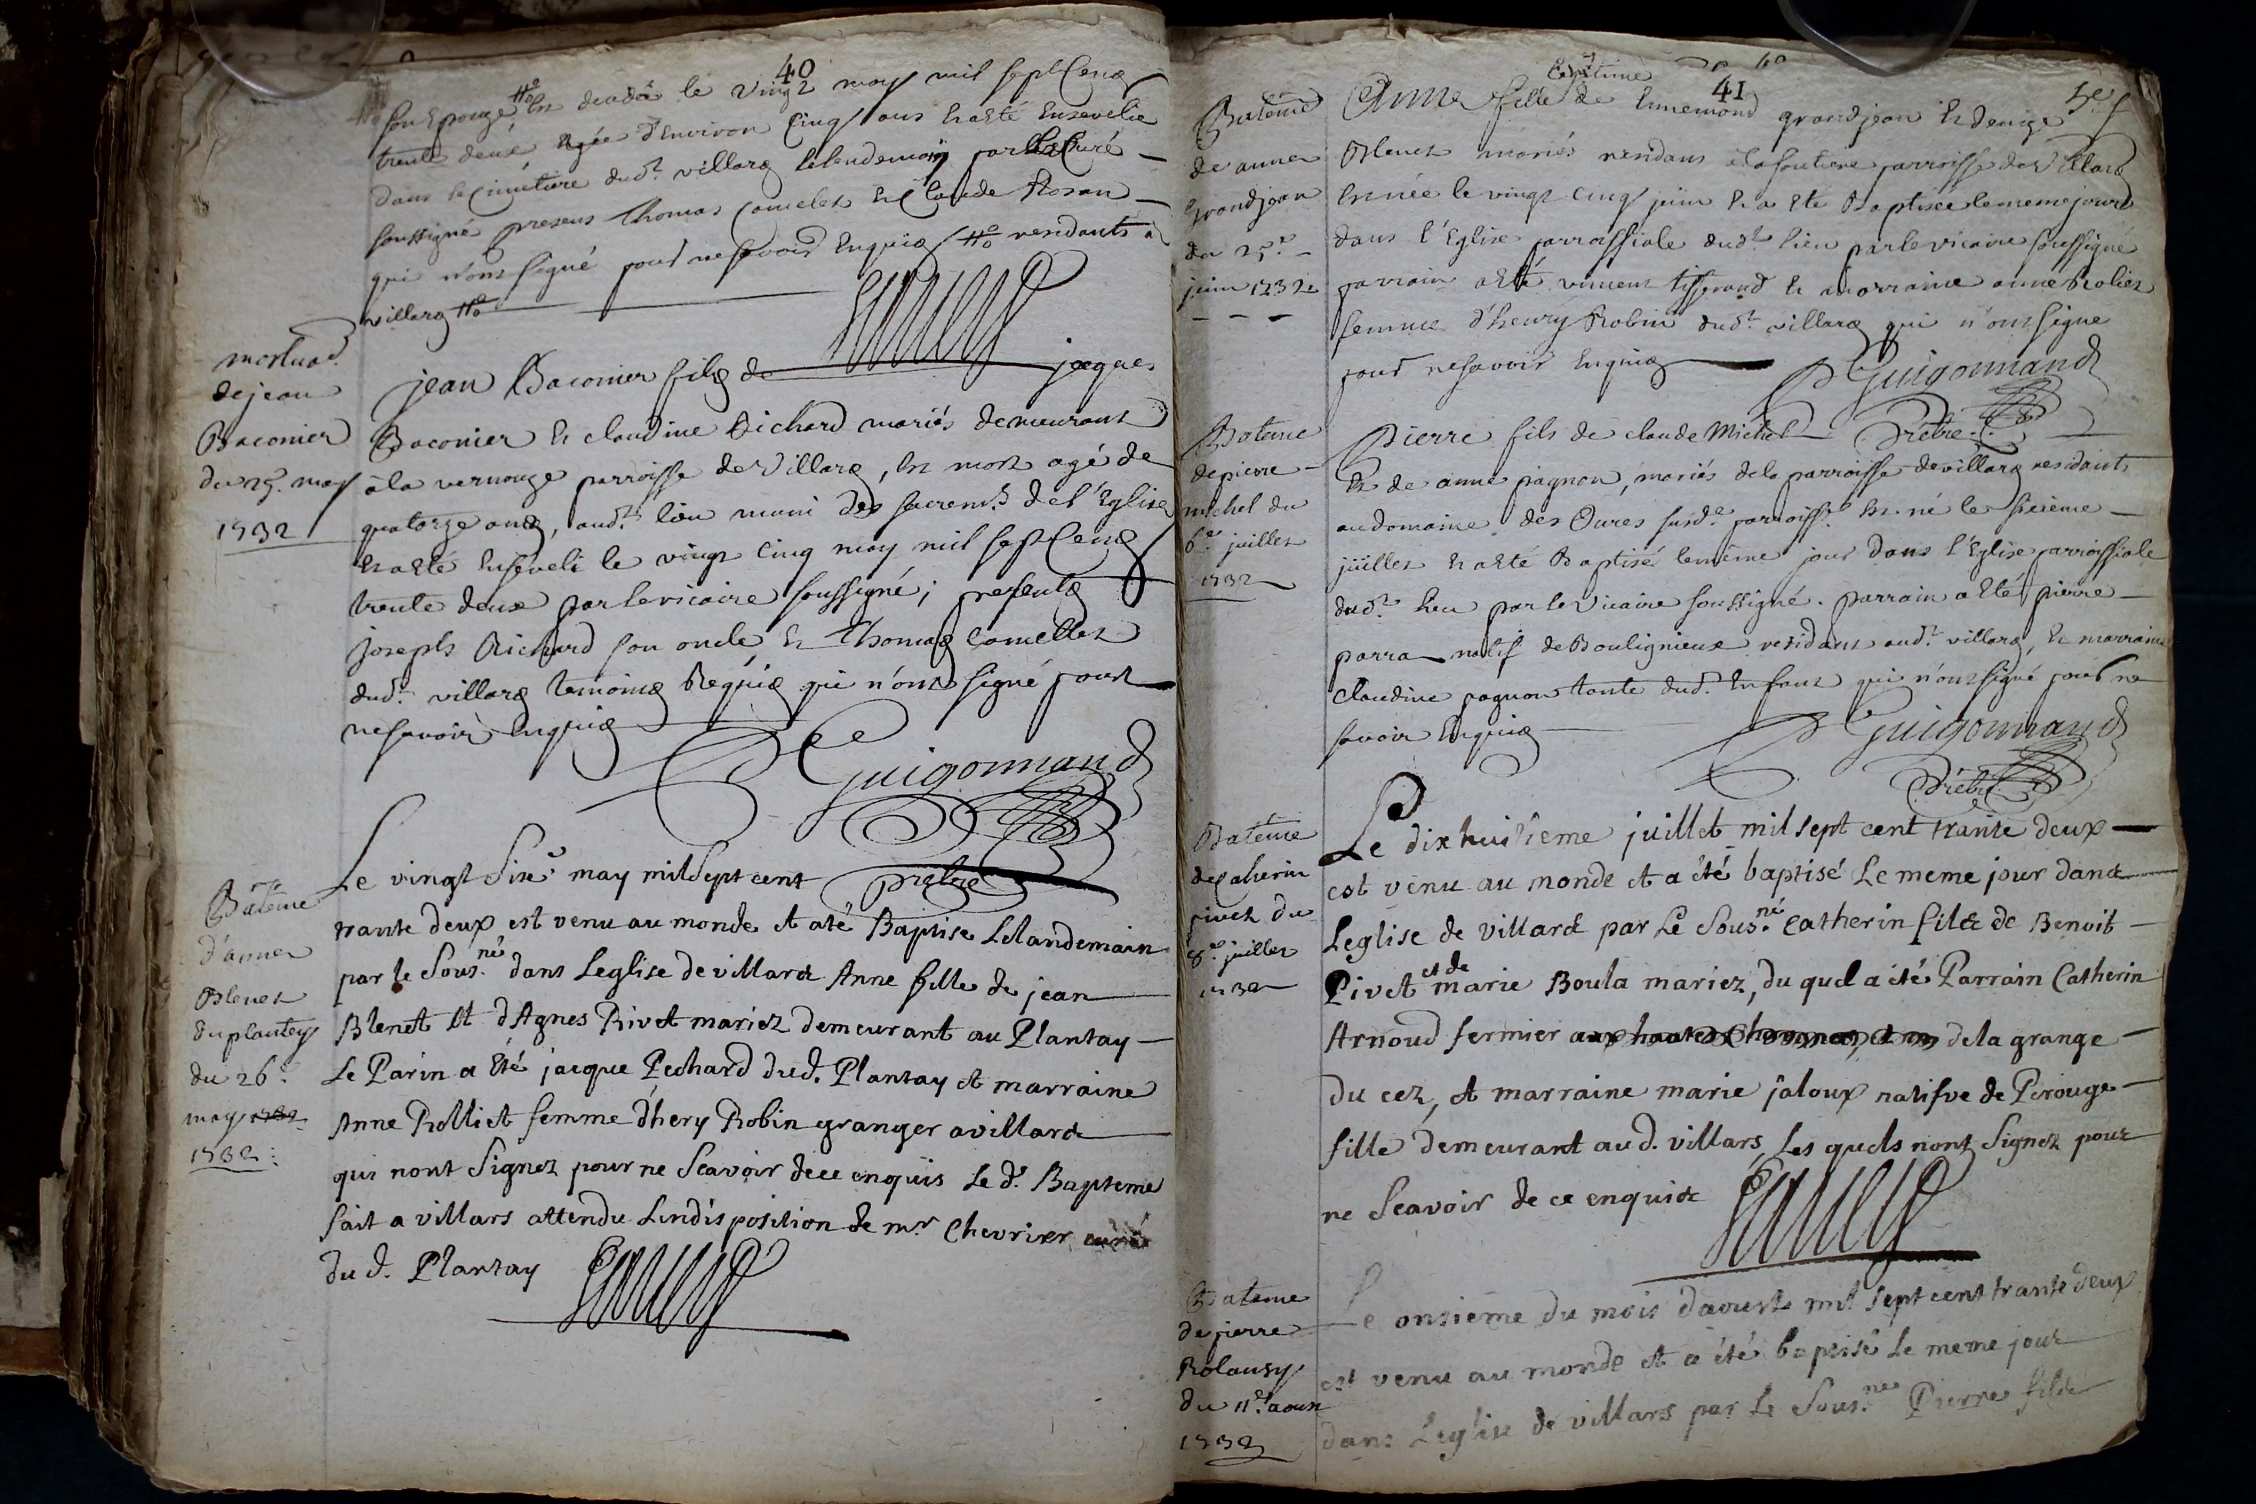 40
son Epouze est decedée le vingt may mil sept Cens
trente deux agée d'Environ Cinq ans Et a Eté Ensevelie
dans le Cimetiere dud.t villars le lendemain par le Curé
soussigné presens Thomas Camelet Et Claude
qui n'ont signé pour ne savoir Enquis residants a
villars
mortua.
de jean
Baconier
du 25. may
1732
jean Baconier fils de jacques
Baconier Et claudine Richard mariés demeurant
a la vernouze parroisse de Villars, Est mort agé de
quatorze ans, aud.t lieu muni des sacrem.ts de l'Eglise
Et a Eté Enseveli le vingt Cinq may mil sept Cens
trente deux par le vicaire soussigné; presents
Joseph Richard son oncle Et Thomas Camellet
dud.t villars temoins Requis qui n'ont signé pour
ne savoir Enquis
Guigonnand
prêtre
Batême
d'anne
Blenet
du plantey
du 26.e
may 1732
1732
Le vingt Sixe. may mil Sept cent
trante deux est venu au monde et a té Baptise Lelandemain
par le Sous.né dans Leglise de villars Anne fille de jean
Blenet et d'Agnes Rivet mariez demeurant au Plantay
Le Parin a été jacque Pechard dud. Plantay et marraine
Anne Rolliet femme d'hery Robin granger a villars
qui nont Signez pour ne Scavoir dece enquis Le d. Bapteme
fait a villars attendu Lindisposition de mr. Chevrier curé
du d. Plantay
41
Batême
de anne
Grandjean
du 25.e
juin 1732
legitime
Anne fille de Ennemond grandjean Et denize
Blenet mariés residans a la foutiere parroisse de Villars
Est née le vingt cinq juin Et a Eté Baptisée le meme jour
dans l'Eglise parroissiale dud.t lieu par le vicaire soussigné
parrain a Eté vincent tisserand Et marraine anne Roliet
femme d'henry Robin dud.t villars qui n'ont signe
pour ne savoir Enquis
Guigonnand
Prêtre
Batême
de pierre
michel du
6.e juillet
1732
Pierre fils de claude Michel
Et de anne pagnon, mariés de la parroisse de villars residants
au domaine des Oures susd.e parroisse Est né le sixieme
juillet Et a Eté Baptisé le même jour dans l'Eglise parroissiale
dud.t lieu par le Vicaire soussigné. parrain a Eté pierre
parra natif de Boulignieux residant aud.t villars, Et marraine
claudine pagnon tante dud.t Enfant qui n'ont signé pour ne
savoir Enquis
Guigonnand
Prêtre
Batême
de catherin
pivet du
8.e juillet
1732
Le dix huitieme juillet mil sept cent trante deux
est venu au monde et a été baptisé Le meme jour dans
Leglise de villars par Le Sous.né Catherin fils de Benoit
Pivet et de marie Boula mariez, du quel a été Parrain Catherin
Arnoud fermier de la grange
du cez, et marraine marie jaloux natifve de Perouge
fille demeurant au d. villars Les quels nont Signez pour
ne Scavoir de ce enquis
Bateme
de pierre
Rolausy
du 11.e aoust
1732
Le onsieme du mois d'aoust mil sept cent trante deux
est venu au monde et a été baptisé Le meme jour
dans Leglise de villars par Le Sous.né Pierre fils de